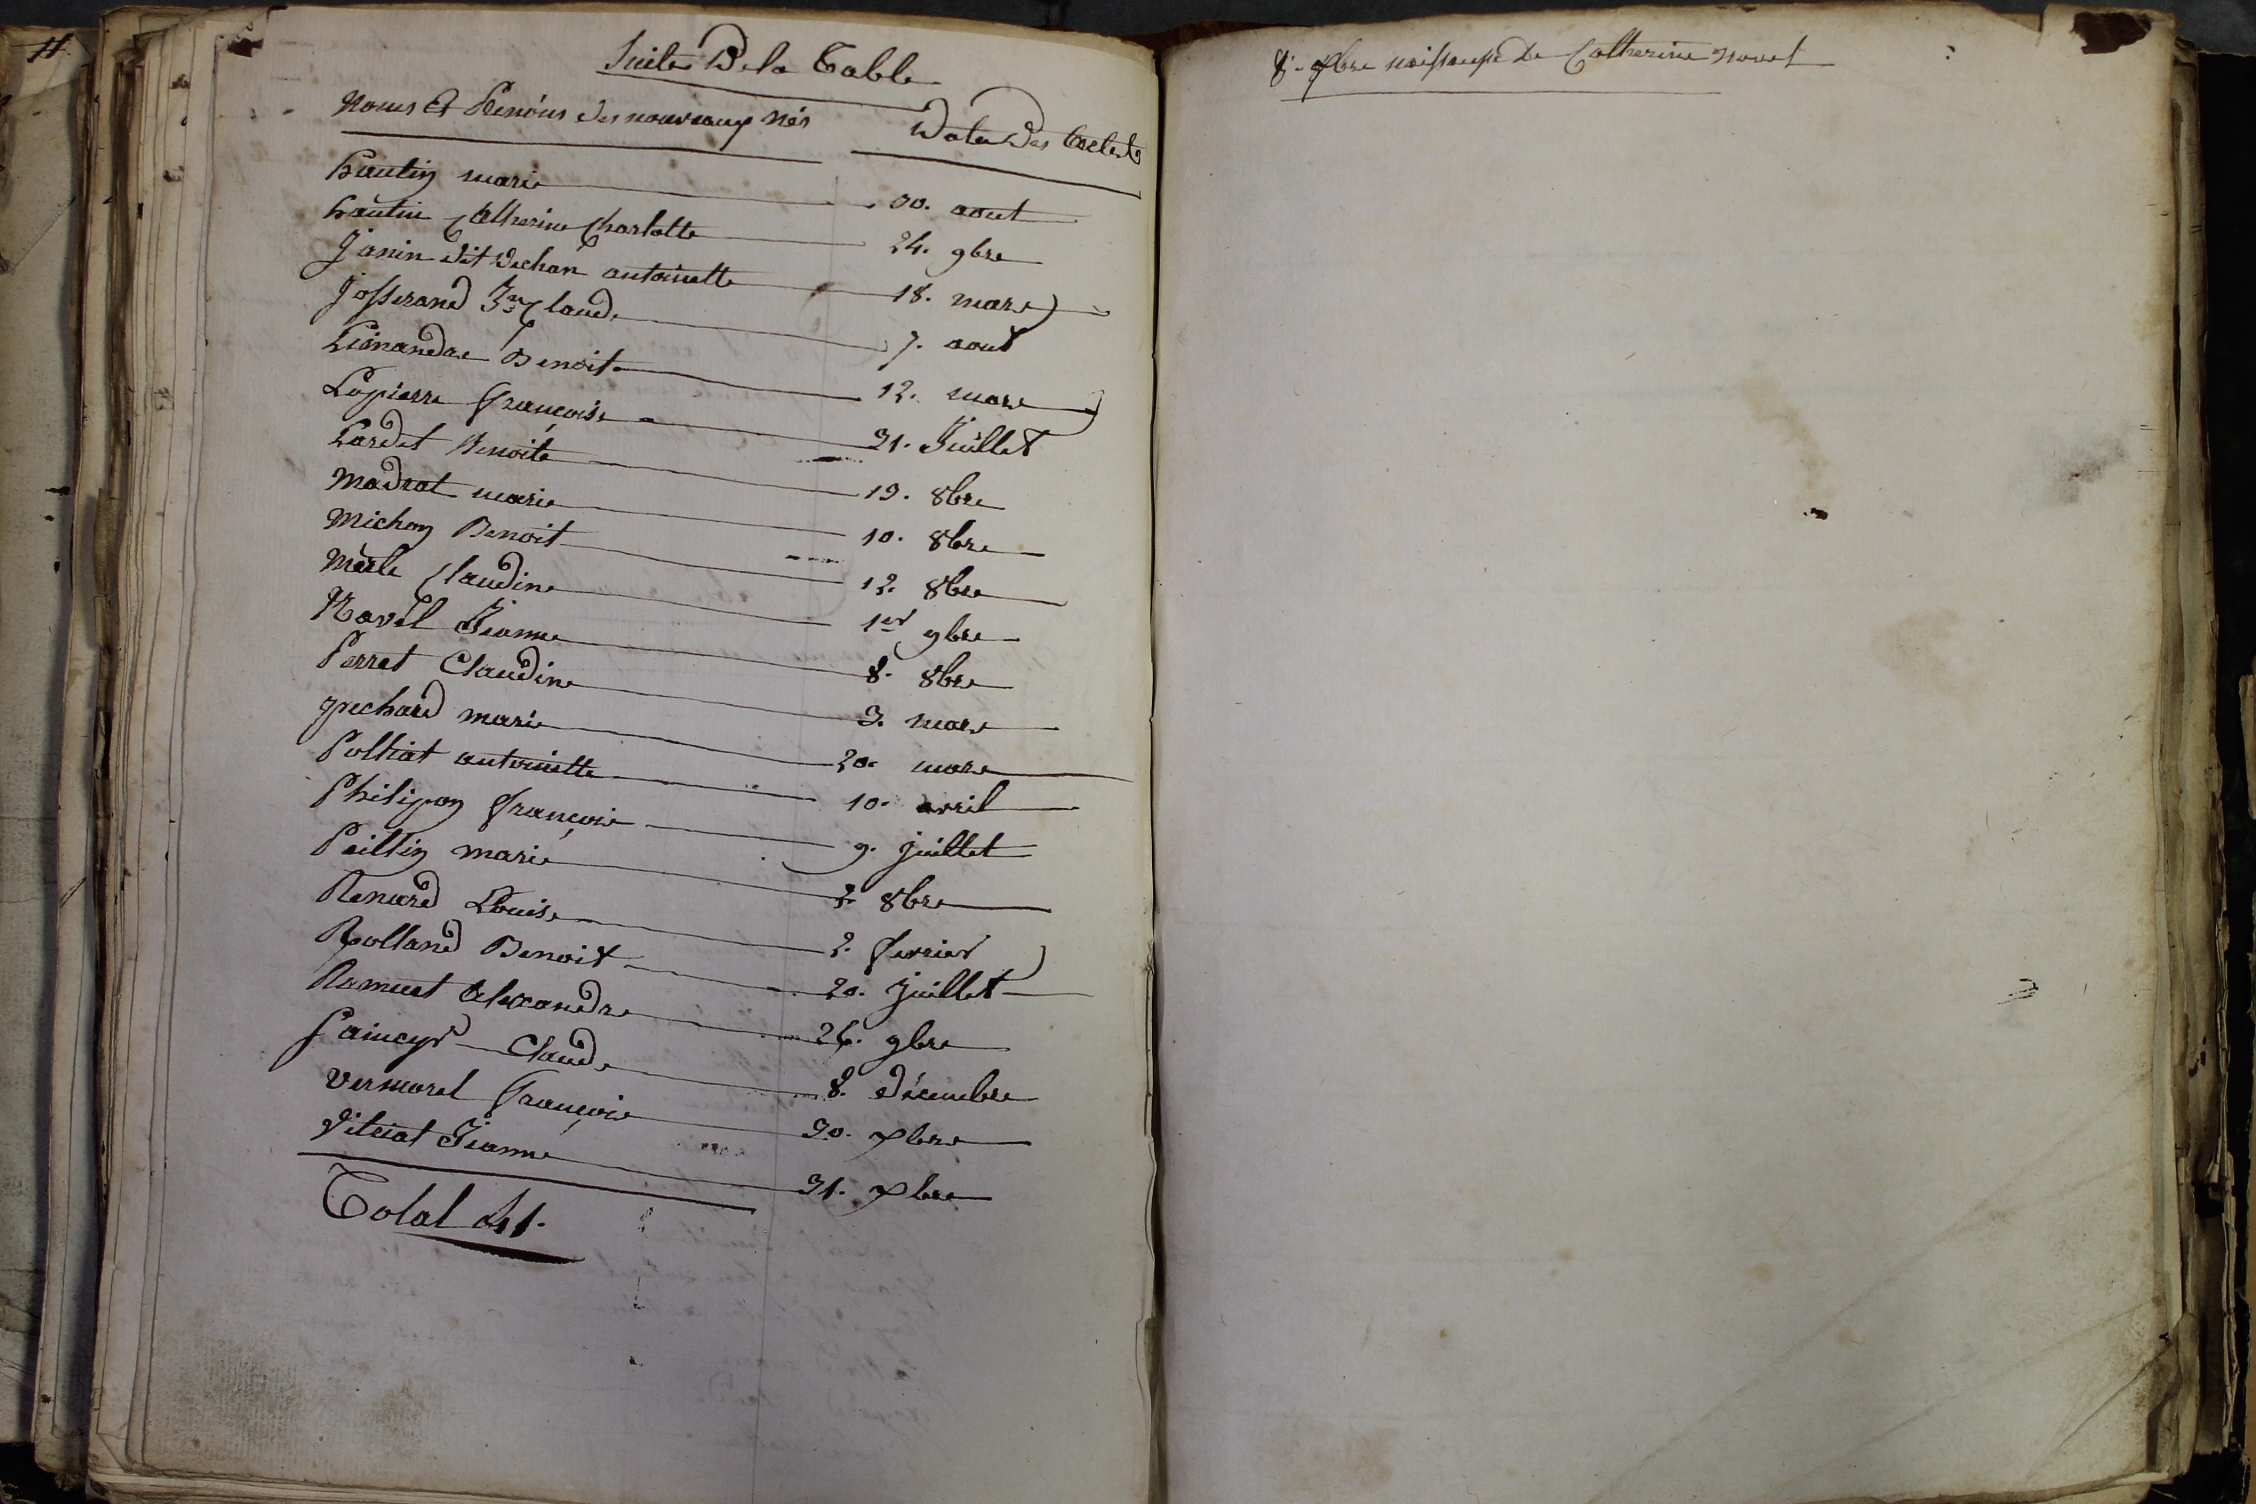 11.
Suite De la Table
Noms Et Prenoms des nouveaux nés
Date Des Actes
hautin marie 30. aout
hautin Catherine Charlotte 24. 9bre
Janin dit dechan antoinette 18. mars
Josserand Jn Claude 7. aout
Lienandre Benoit 12. mars
Lapierre françoise 31. Juillet
Lardet Benoite 19. 8bre
Madrat marie 10. 8bre
Michon Benoit 12. 8bre
Merle Claudine 1er 9bre
Navel Jeanne 8. 8bre
Perret Claudine 3. mars
prechard marie 20. mars
Polliat antoinette 10. avril
Philipon françois 9. juillet
Peillin marie 2. 8bre
Renard Louise 2. fevrier
Rolland Benoit 20. Juillet
Ramuet Alexandre 26. 9bre
Saincyr Claude 8. décembre
vermorel françois 30. xbre
Vitriat Jeanne 31. xbre
Total 41.
8. xbre naissance De Catherine novel